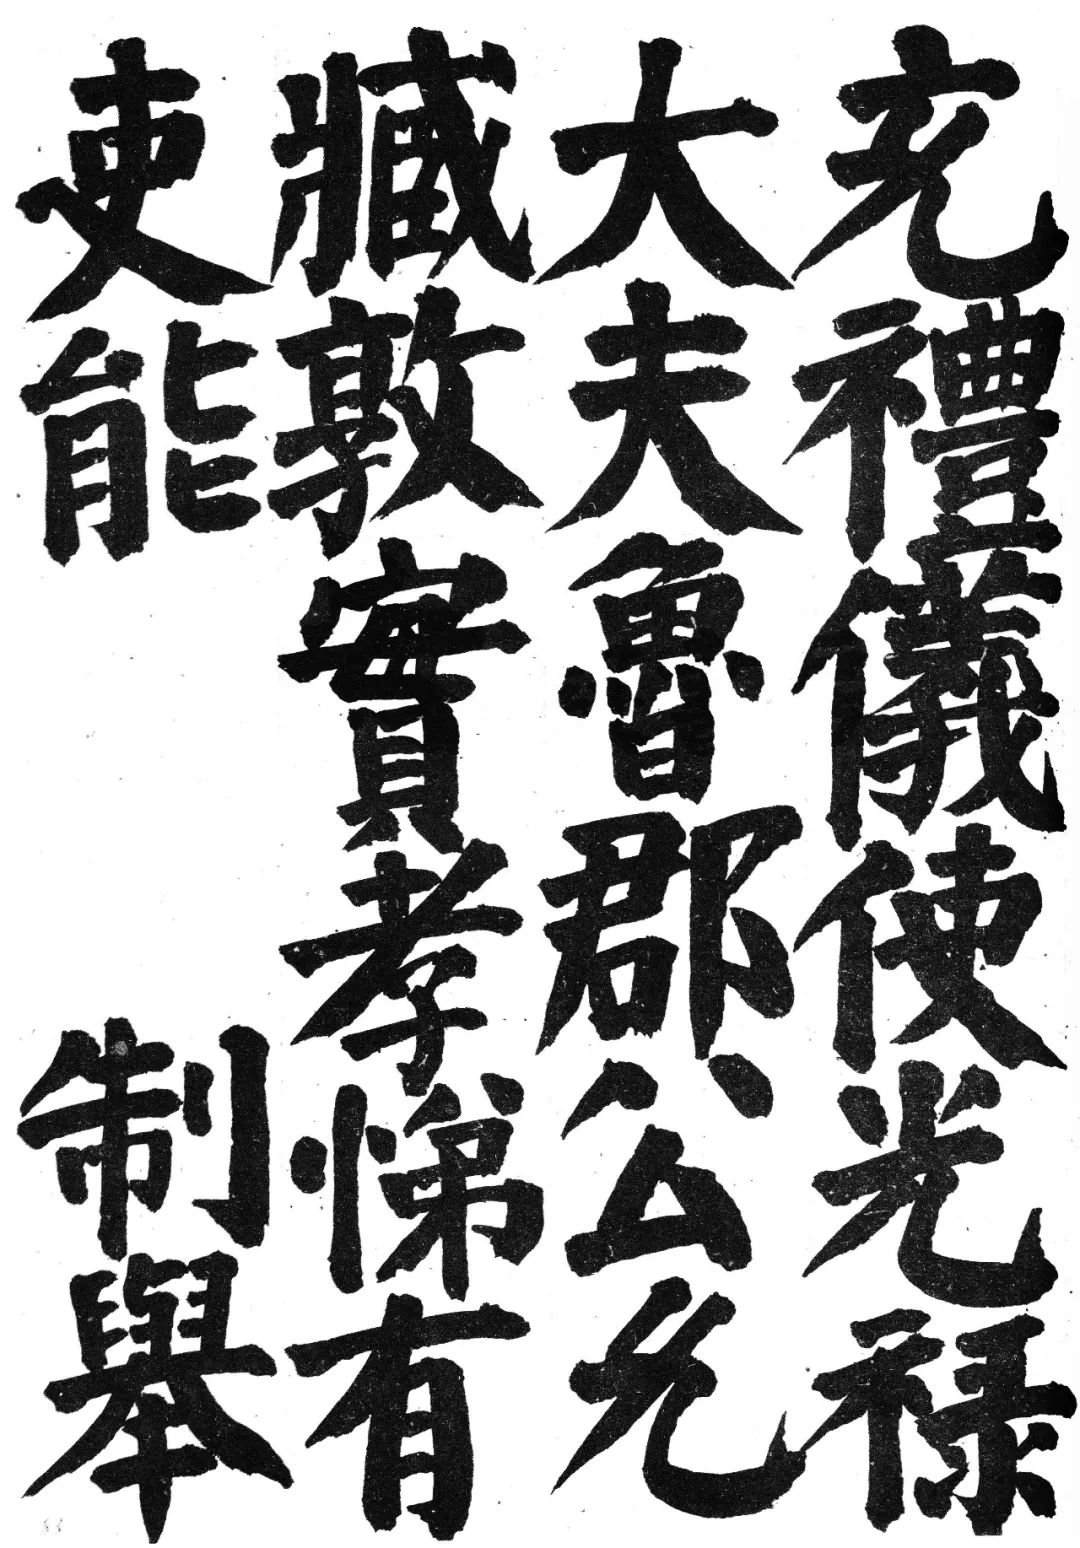 充禮儀使光禄
大夫魯郡公允
臧敦實孝悌有
吏能 制舉